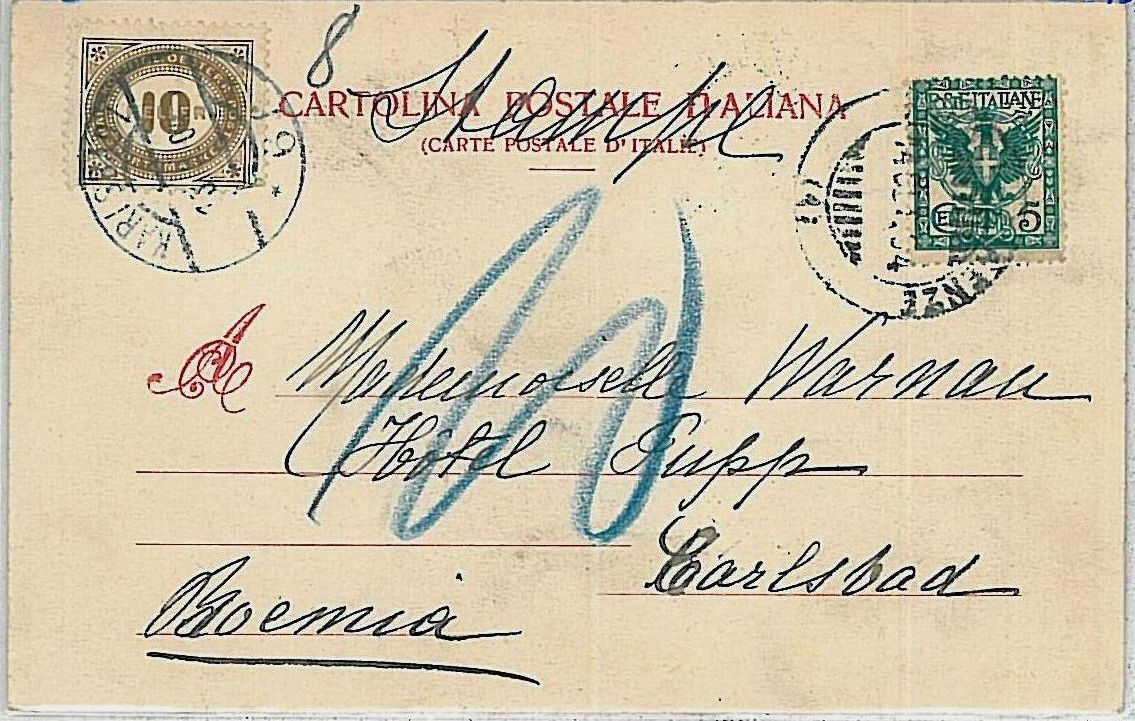 8
Stampe
CARTOLINA POSTALE ITALIANA
(CARTE POSTALE D'ITALIE)
10
POSTE ITALIANE
5
A
10
Mademoiselle Warnau
Hôtel Pupp
Carlsbad
Boemia